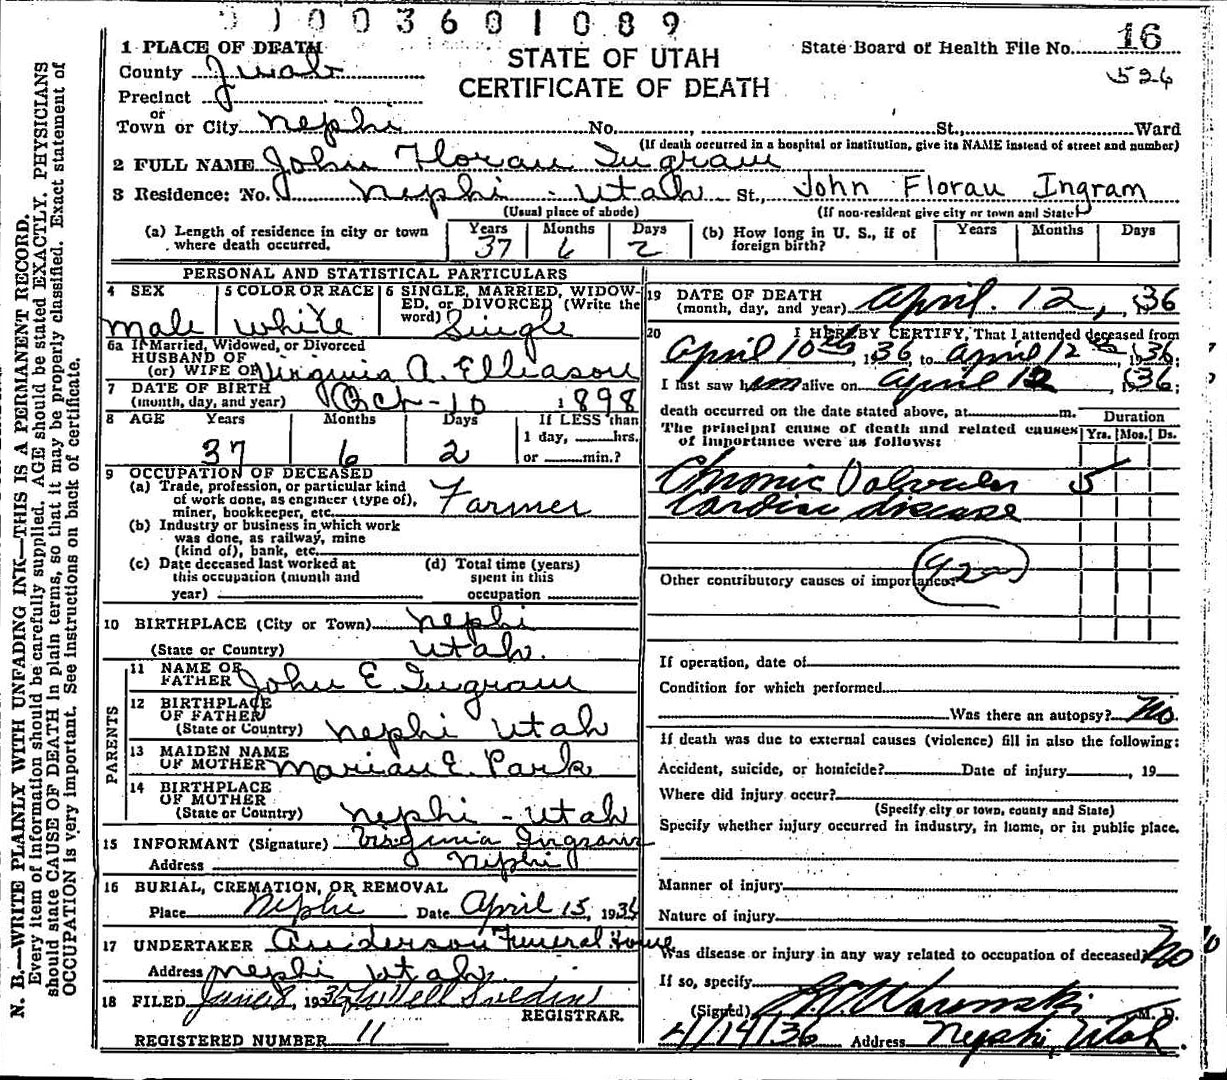 0 1 0 0 3 6 0 1 0 8 9
STATE OF UTAH
CERTIFICATE OF DEATH
State Board of Health File No. 16
524
1 PLACE OF DEATH
County Juab
Precinct
or
Town or City Nephi No. , St., Ward
(If death occurred in a hospital or institution, give its NAME instead of street and number)
2 FULL NAME John Florau Ingram
3 Residence: No. Nephi - Utah St., John Florau Ingram
(Usual place of abode) (If non-resident give city or town and State)
(a) Length of residence in city or town where death occurred. Years 37 Months 6 Days 2 (b) How long in U. S., if of foreign birth? Years Months Days
PERSONAL AND STATISTICAL PARTICULARS
4 SEX male
5 COLOR OR RACE white
6 SINGLE, MARRIED, WIDOWED, or DIVORCED (Write the word) Single
6a If Married, Widowed, or Divorced
HUSBAND OF
(or) WIFE OF Virginia A. Elliason
7 DATE OF BIRTH
(month, day, and year) Oct - 10 1898
8 AGE Years 37 Months 6 Days 2 If LESS than
1 day, hrs.
or min.?
9 OCCUPATION OF DECEASED
(a) Trade, profession, or particular kind
of work done, as engineer (type of),
miner, bookkeeper, etc. Farmer
(b) Industry or business in which work
was done, as railway, mine
(kind of), bank, etc.
(c) Date deceased last worked at
this occupation (month and
year)
(d) Total time (years)
spent in this
occupation
10 BIRTHPLACE (City or Town) Nephi
(State or Country) Utah.
PARENTS
11 NAME OF
FATHER John E Ingram
12 BIRTHPLACE
OF FATHER
(State or Country) Nephi Utah
13 MAIDEN NAME
OF MOTHER Marian E. Park
14 BIRTHPLACE
OF MOTHER
(State or Country) Nephi - Utah
15 INFORMANT (Signature) Virginia Ingram
Address Nephi
16 BURIAL, CREMATION, OR REMOVAL
Place Nephi Date April 15, 1936
17 UNDERTAKER Anderson Funeral Home
Address Nephi Utah.
18 FILED June 8, 1936
REGISTRAR.
REGISTERED NUMBER 11
19 DATE OF DEATH
(month, day, and year) April. 12, 36
20 I HEREBY CERTIFY, That I attended deceased from
April 10th, 36 to April 12th, 1936;
I last saw him alive on April 12 36;
death occurred on the date stated above, at m.
The principal cause of death and related causes
of importance were as follows:
Duration
Yrs. Mos. Ds.
Chronic Valvular 5
Cardiac disease
Other contributory causes of importance:
If operation, date of
Condition for which performed
Was there an autopsy? No.
If death was due to external causes (violence) fill in also the following:
Accident, suicide, or homicide? Date of injury , 19
Where did injury occur?
(Specify city or town, county and State)
Specify whether injury occurred in industry, in home, or in public place.
Manner of injury
Nature of injury
Was disease or injury in any way related to occupation of deceased? No
If so, specify
(Signed) M. D.
4/14/36 Address Nephi, Utah.
N. B.—WRITE PLAINLY WITH UNFADING INK—THIS IS A PERMANENT RECORD.
Every item of information should be carefully supplied. AGE should be stated EXACTLY. PHYSICIANS
should state CAUSE OF DEATH in plain terms, so that it may be properly classified. Exact statement of
OCCUPATION is very important. See instructions on back of certificate.